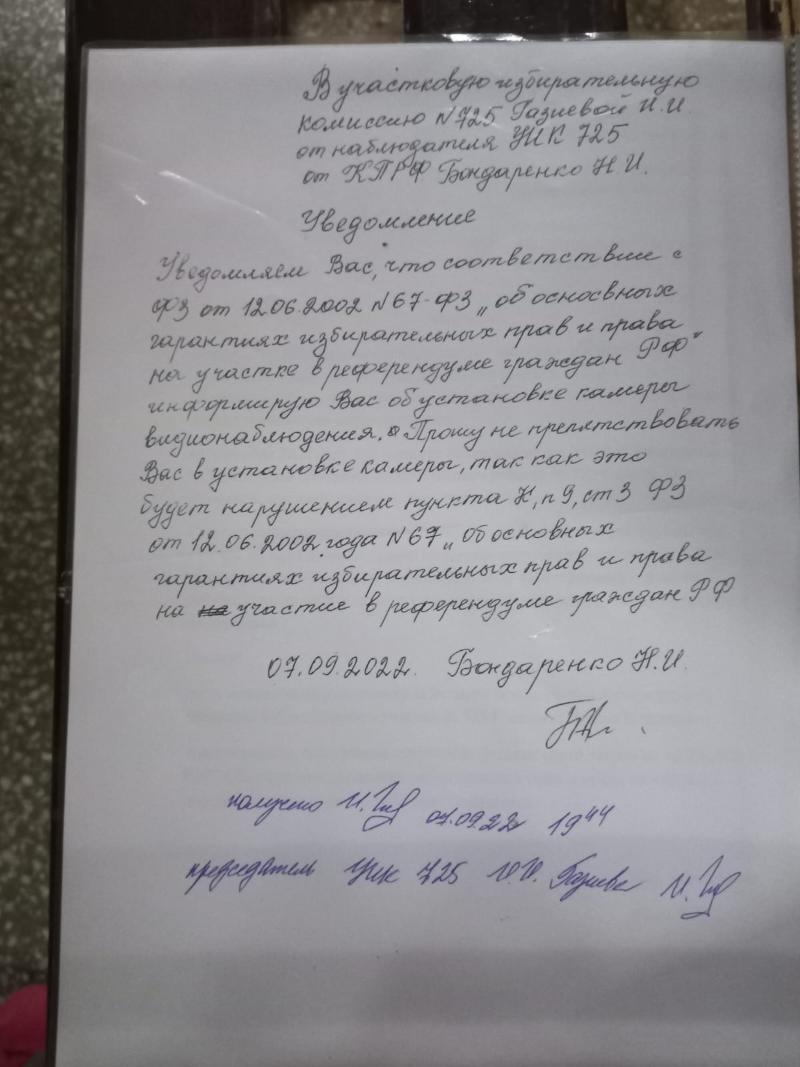 В участковую избирательную
комиссию N725 Газиевой И.И
от наблюдателя УИК 725
от КПРФ Бондаренко Н.И.
Уведомление
Уведомляем Вас, что соответствии с
ФЗ от 12.06.2002 N67-ФЗ „об основных
гарантиях избирательных прав и права
на участке в референдуме граждан РФ"
информирую Вас об установке камеры
видионаблюдения. Прошу не препятствовать
Вас в установке камеры, так как это
будет нарушением пункта К, п 9, ст 3 ФЗ
от 12.06.2002 года N67 „об основных
гарантиях избирательных прав и права
на участие в референдуме граждан РФ
07.09.2022. Бондаренко Н.И.
получено 07.09.22 19 44
председатель УИК 725 И.И. Газиева